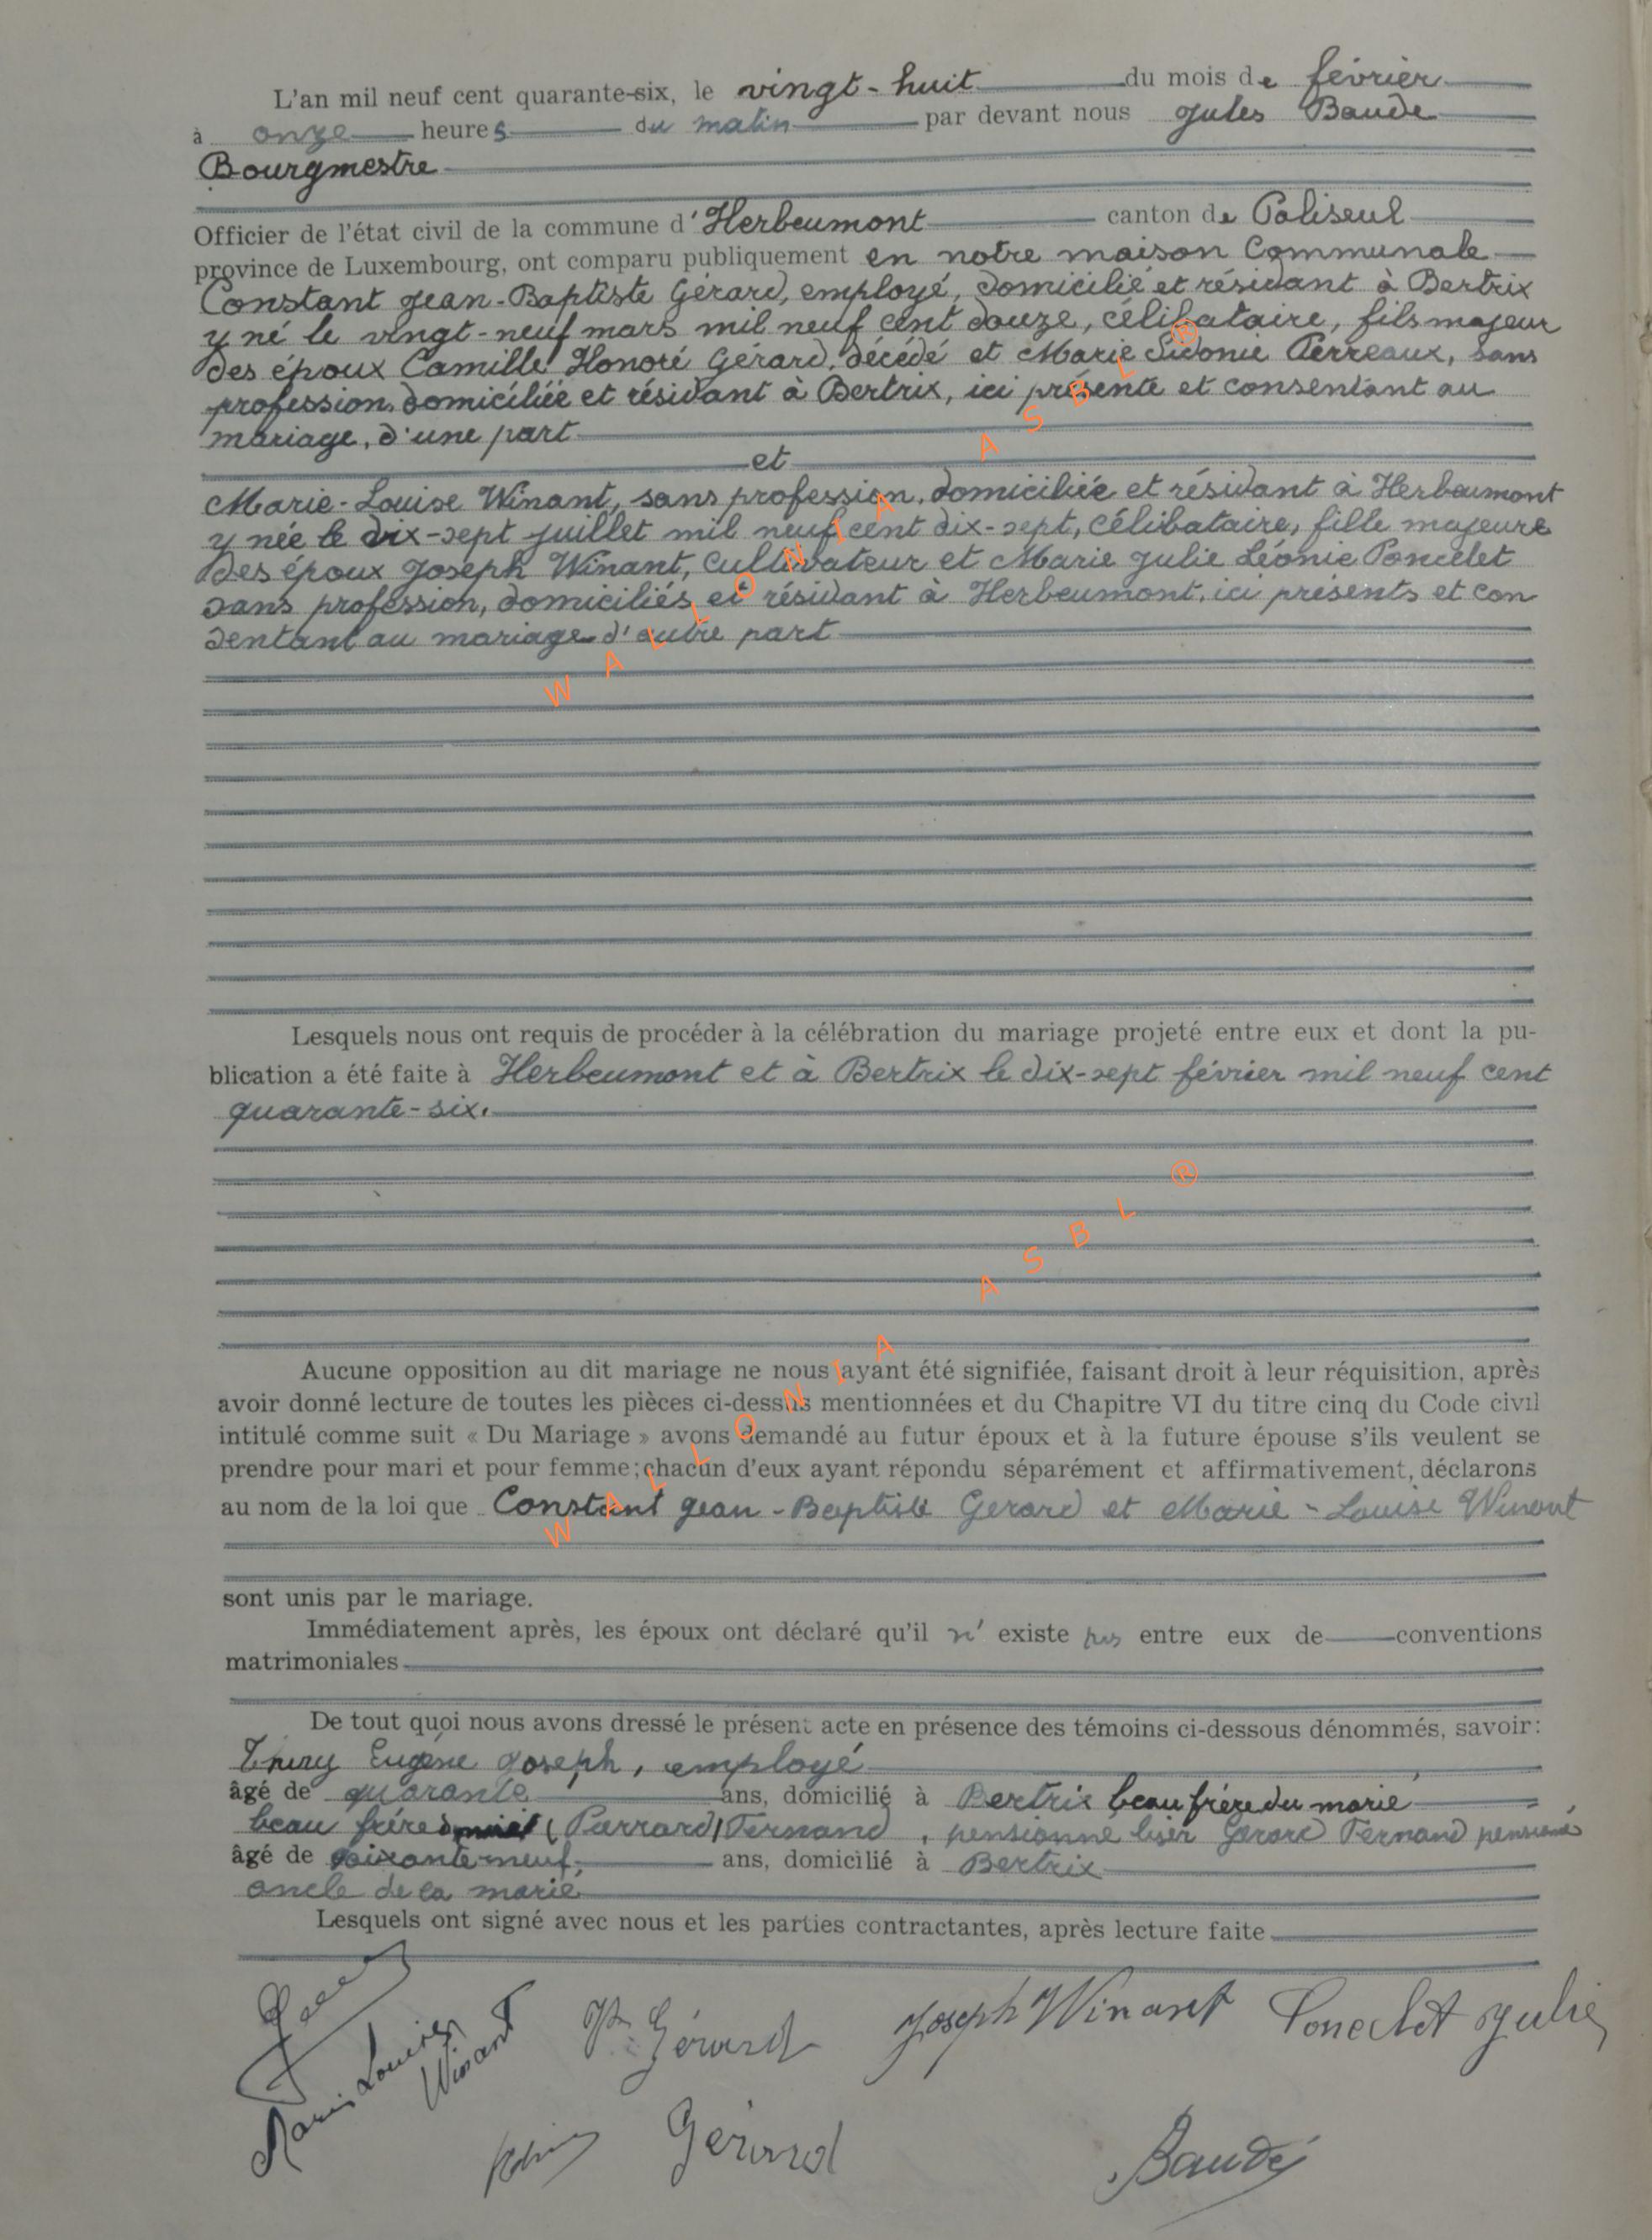 L'an mil neuf cent quarante-six, le vingt-huit du mois de février
à onze heures du matin par devant nous Jules Baude
Bourgmestre
Officier de l'état civil de la commune d'Herbeumont canton de Paliseul
province de Luxembourg, ont comparu publiquement en notre maison Communale
Constant Jean-Baptiste Gérard, employé, domicilié et résidant à Bertrix
y né le vingt-neuf mars mil neuf cent douze, célibataire, fils majeur
des époux Camille Honoré Gérard, décédé et Marie Sidonie Perreaux, sans
profession, domiciliée et résidant à Bertrix, ici présente et consentant au
mariage, d'une part
et
Marie-Louise Winant, sans profession, domiciliée et résidant à Herbeumont
y née le dix-sept juillet mil neuf cent dix-sept, célibataire, fille majeure
des époux Joseph Winant, Cultivateur et Marie Julie Léonie Poncelet
sans profession, domiciliés et résidant à Herbeumont, ici présents et con
sentant au mariage d'autre part
Lesquels nous ont requis de procéder à la célébration du mariage projeté entre eux et dont la pu-
blication a été faite à Herbeumont et à Bertrix le dix-sept février mil neuf cent
quarante-six.
Aucune opposition au dit mariage ne nous ayant été signifiée, faisant droit à leur réquisition, après
avoir donné lecture de toutes les pièces ci-dessus mentionnées et du Chapitre VI du titre cinq du Code civil
intitulé comme suit « Du Mariage » avons demandé au futur époux et à la future épouse s'ils veulent se
prendre pour mari et pour femme; chacun d'eux ayant répondu séparément et affirmativement, déclarons
au nom de la loi que Constant Jean-Baptiste Gerard et Marie-Louise Winant
sont unis par le mariage.
Immédiatement après, les époux ont déclaré qu'il n' existe pas entre eux de conventions
matrimoniales
De tout quoi nous avons dressé le présent acte en présence des témoins ci-dessous dénommés, savoir:
Thiry Eugène Joseph, employé
âgé de quarante ans, domicilié à Bertrix beau frère du marié
beau frère (Parrard) Fernand, pensionné liser Gerard Fernand pensionné
âgé de soixante neuf, ans, domicilié à Bertrix
oncle de la marié
Lesquels ont signé avec nous et les parties contractantes, après lecture faite
Marie Louise Winant
Gérard
Joseph Winant
Poncelet Julie
Gérard
Baude
WALLONIA ASBL ®
WALLONIA ASBL ®